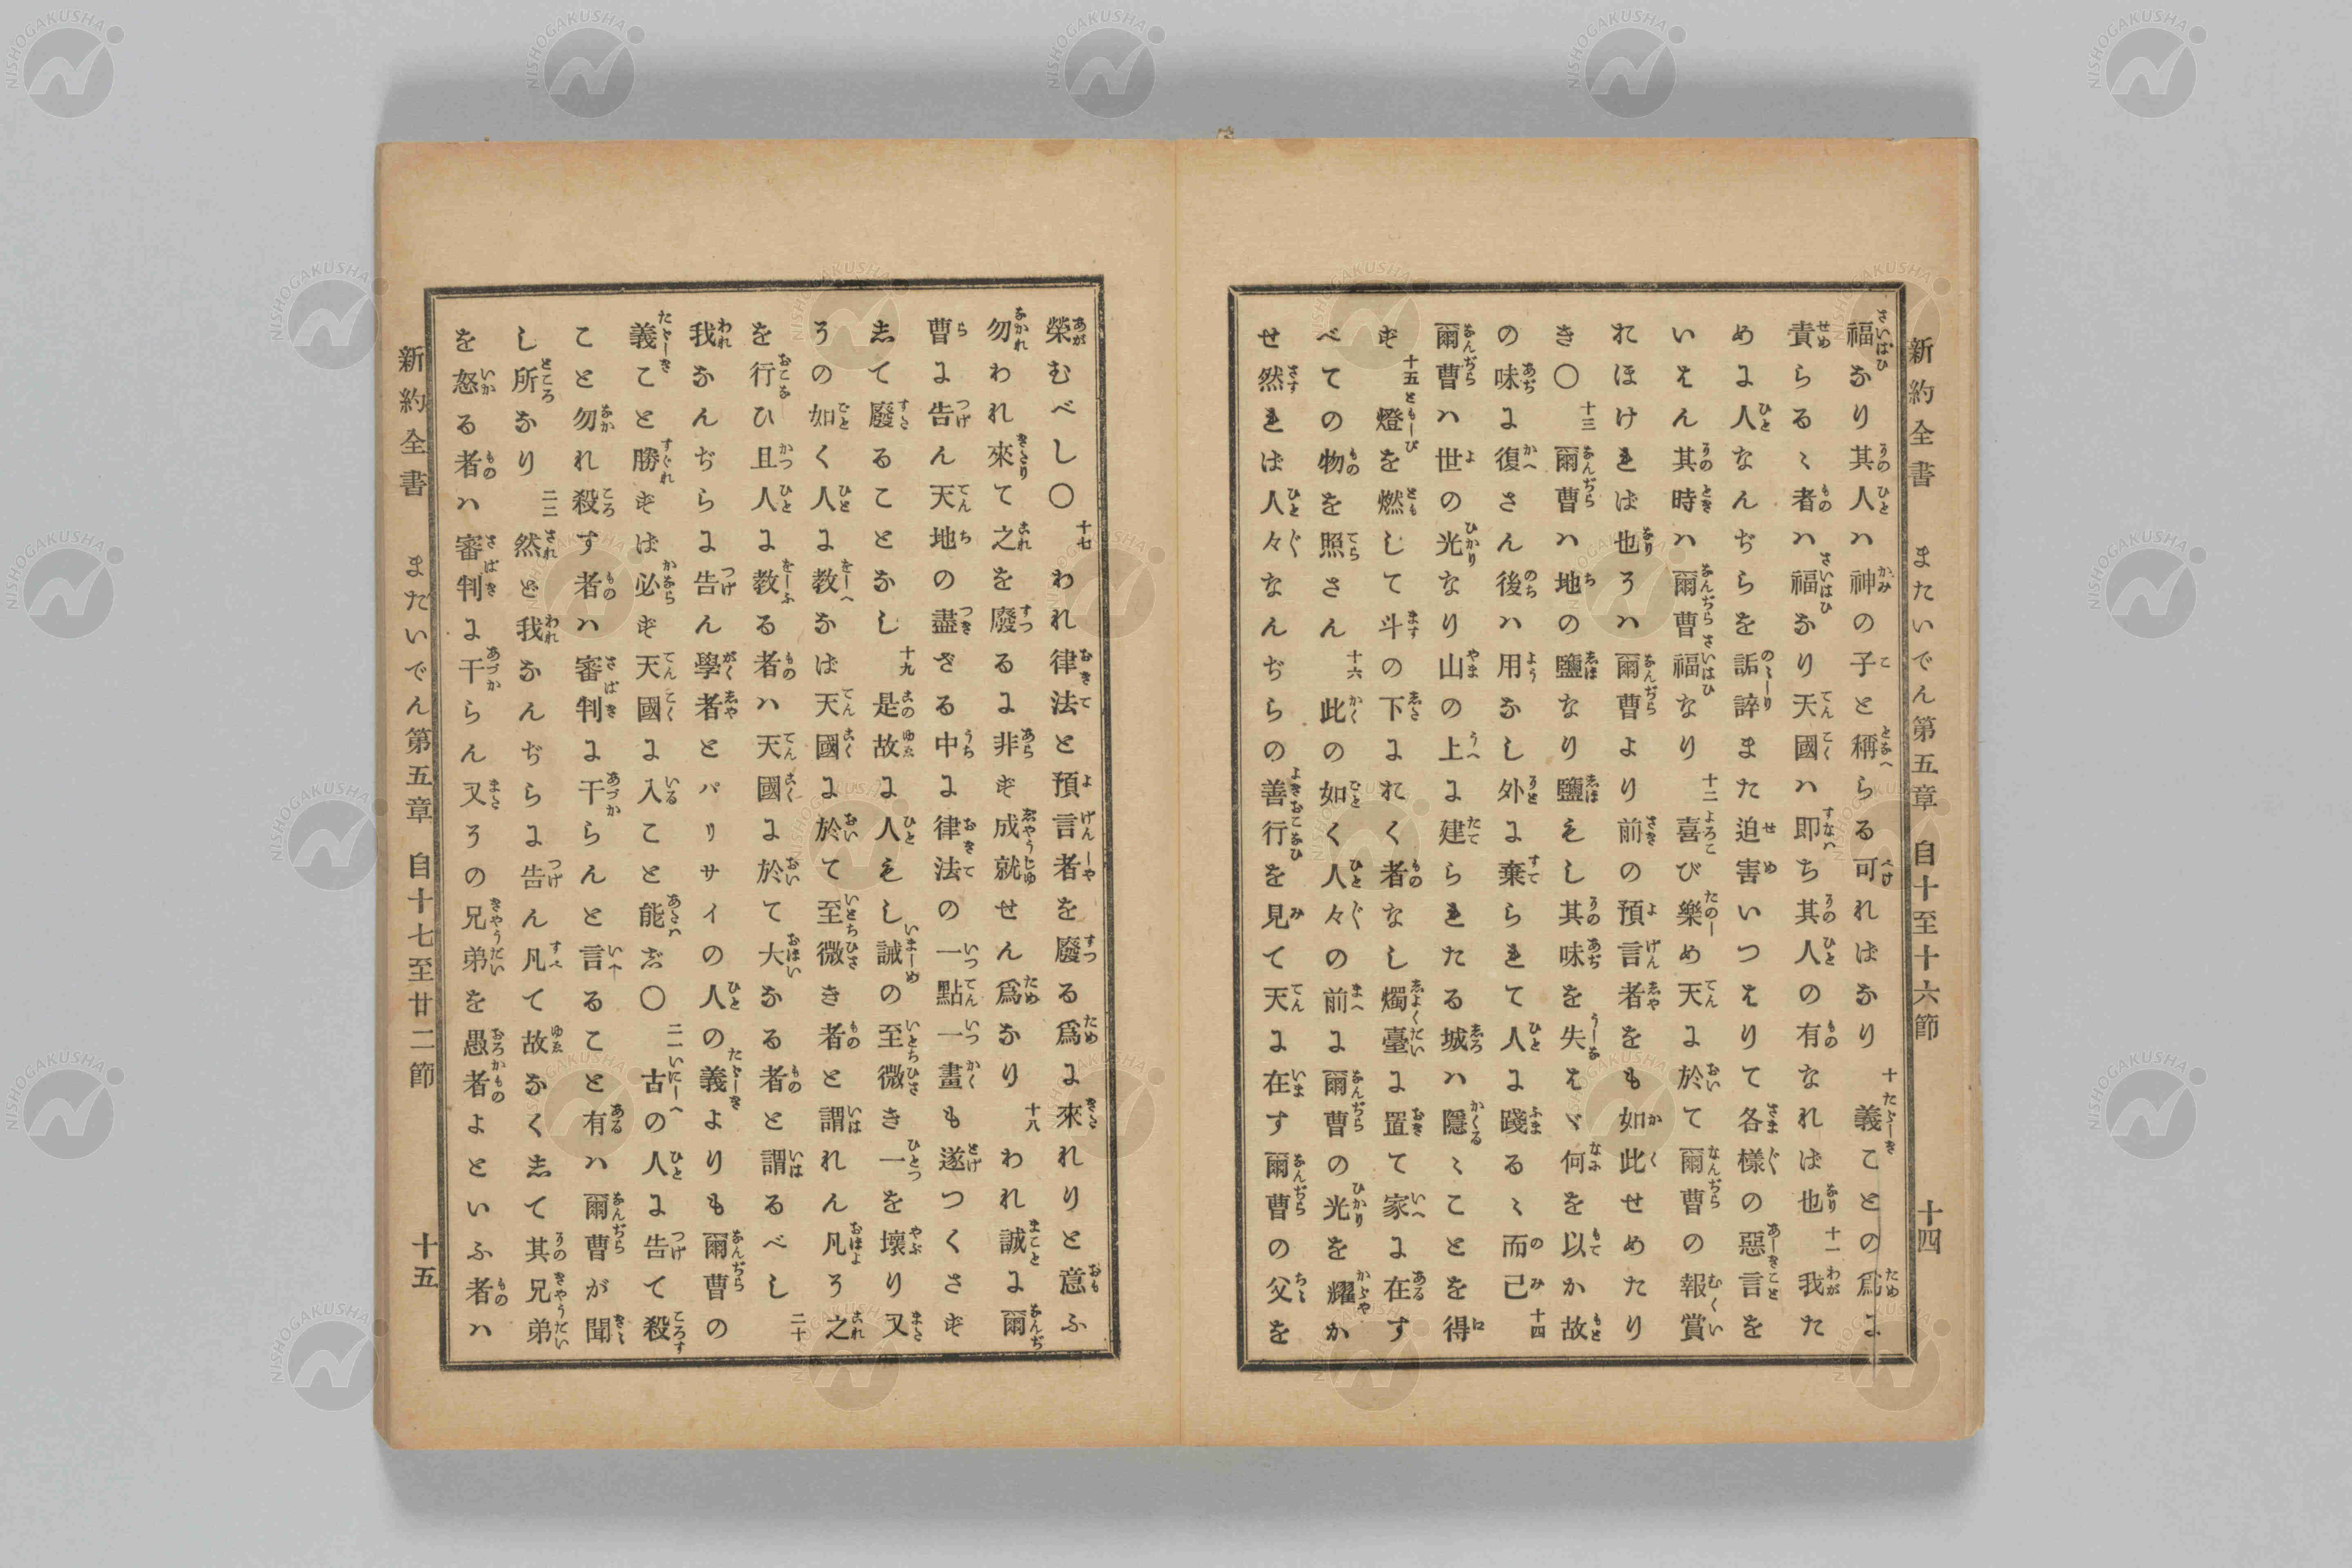 新約全書 またいでん第五章 自十至十六節 十四
福なり其人ハ神の子と稱らる可ればなり 十 義ことの爲に
責らるゝ者ハ福なり天國ハ即ち其人の有なれば也 十一 我た
めに人なんぢらを詬誶また迫害いつえりて各樣の惡言を
いえん其時ハ爾曹福なり 十二 喜び樂め天に於て爾曹の報賞
れほければ也そハ爾曹より前の預言者をも如此せめたり
き〇 十三 爾曹ハ地の鹽なり鹽もし其味を失えゞ何を以か故
の味に復さん後ハ用なし外に棄られて人に踐るゝ而己 十四
爾曹ハ世の光なり山の上に建られたる城ハ隱るゝことを得
ず 十五 燈を燃して斗の下にれく者なし燭臺に置て家に在す
べての物を照さん 十六 此の如く人々の前に爾曹の光を耀か
せ然れば人々なんぢらの善行を見て天に在す爾曹の父を
榮むべし〇 十七 われ律法と預言者を廢る爲に來れりと意ふ
勿われ來て之を廢るに非ず成就せん爲なり 十八 われ誠に爾
曹に告ん天地の盡ざる中に律法の一點一畫も遂つくさず
して廢ることなし 十九 是故に人もし誡の至微き一を壞り又
その如く人に教なば天國に於て至微き者と謂れん凡そ之
を行ひ且人に教る者ハ天國に於て大なる者と謂るべし 二十
我なんぢらに告ん學者とパリサイの人の義よりも爾曹の
義こと勝ずば必ず天國に入こと能じ〇 二一 古の人に告て殺
こと勿れ殺す者ハ審判に干らんと言ることと有ハ爾曹が聞
し所なり 二二 然ど我なんぢらに告ん凡て故なくして其兄弟
を怒る者ハ審判に干らん又その兄弟を愚者よといふ者ハ
新約全書 またいでん第五章 自十七至廿二節 十五